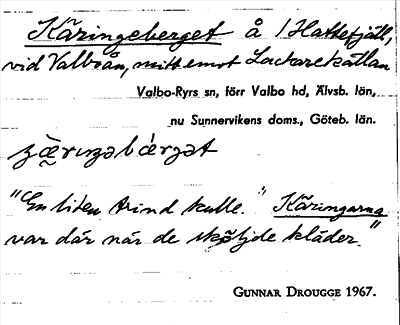 Käringeberget å /Hattefjäll,
vid Valboån, mitt emot Lackarekällan
Valbo-Ryrs sn, förr Valbo hd, Älvsb. län,
nu Sunnervikens doms., Göteb. län.
"En liten trind kulle." "Käringarna
var där när de sköljde kläder."
GUNNAR DROUGGE 1967.